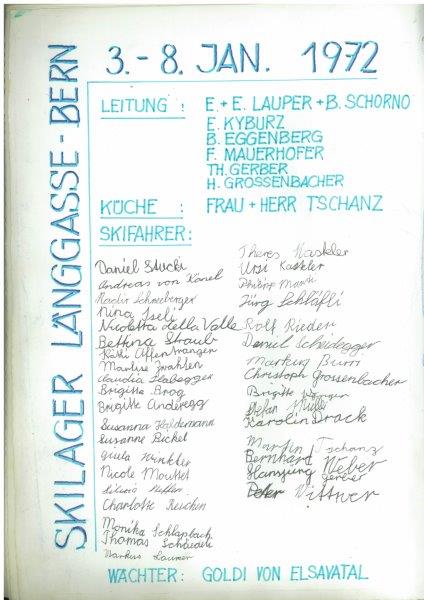 SKILAGER LÄNGGASSE - BERN
3. - 8. JAN. 1972
LEITUNG : E. + E. LAUPER + B. SCHORNO
E. KYBURZ
B. EGGENBERG
F. MAUERHOFER
TH. GERBER
H. GROSSENBACHER
KÜCHE : FRAU + HERR TSCHANZ
SKIFAHRER :
Daniel Stucki
Andreas von Känel
Nina Iseli
Nicoletta della Valle
Bettina Straub
Käthi Affentranger
Marlise Zwahlen
Claudia Habegger
Brigitte Brog
Brigitte Anderegg
Susanna Haldemann
Susanne Bickel
Winkler
Nicole Mouttet
Silvia
Charlotte Reichen
Monika Schlapbach
Thomas
Markus
Theres Kasteler
Ursi Kasteler
Philipp
Jürg Schläfli
Rolf Rieder
Daniel Scheidegger
Markus Burri
Christoph Grossenbacher
Brigitte
Stefan Müller
Karolin Drack
Martin Tschanz
Bernhard Weber
Hansjürg Gerber
Peter Wittwer
WÄCHTER : GOLDI VON ELSAVATAL